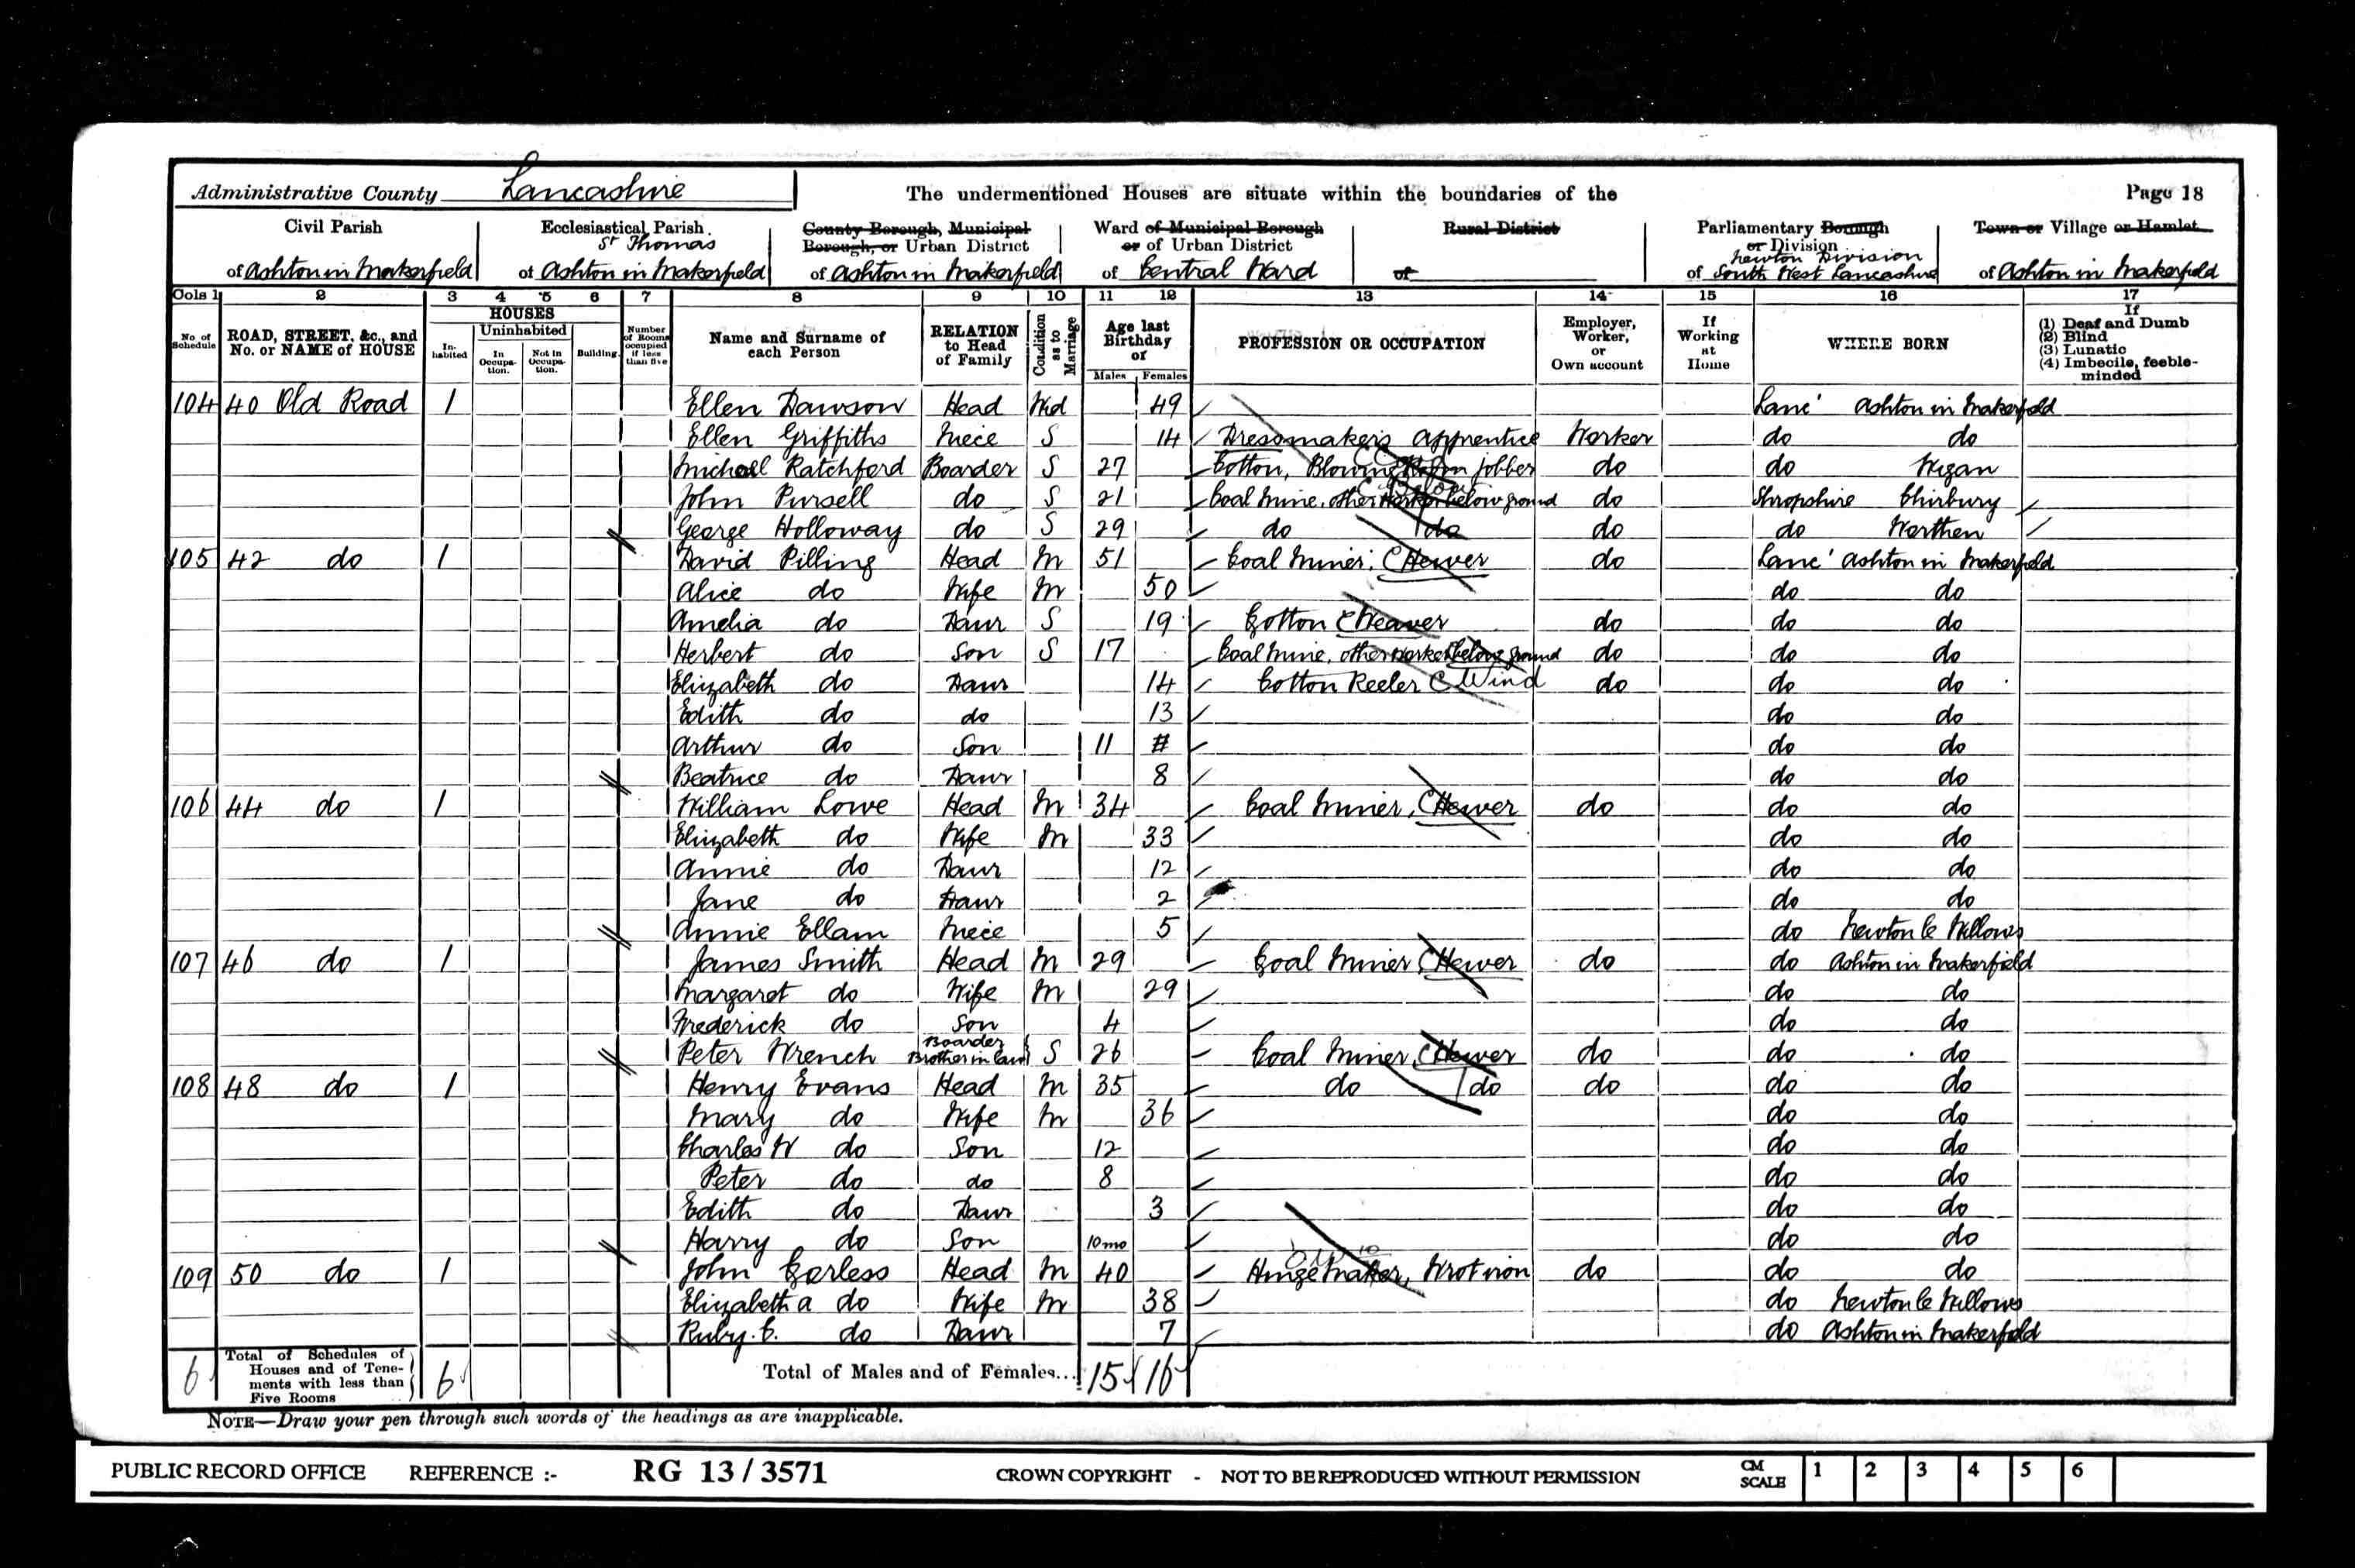 Administrative County Lancashire The undermentioned Houses are situate within the boundaries of the Page 18
Civil Parish of Ashton in Makerfield
Ecclesiastical Parish St Thomas of Ashton in Makerfield
County Borough, Municipal Borough, or Urban District of Ashton in Makerfield
Ward of Municipal Borough or of Urban District of Central Ward
Rural District of
Parliamentary Borough or Division of Newton Division South West Lancashire
Town or Village or Hamlet of Ashton in Makerfield
Cols 1 2 3 4 5 6 7 8 9 10 11 12 13 14 15 16 17
No of Schedule
ROAD, STREET, &c., and No. or NAME of HOUSE
HOUSES
In-habited
Uninhabited
In Occupa-tion.
Not in Occupa-tion.
Building
Number of Rooms occupied if less than five
Name and Surname of each Person
RELATION to Head of Family
Condition as to Marriage
Age last Birthday of
Males Females
PROFESSION OR OCCUPATION
Employer, Worker, or Own account
If Working at Home
WHERE BORN
If
(1) Deaf and Dumb
(2) Blind
(3) Lunatic
(4) Imbecile, feeble-minded
104 40 Old Road 1 Ellen Dawson Head Wid 49 Lanc' Ashton in Makerfield
Ellen Griffiths Niece S 14 Dressmakers apprentice Worker do do
Michael Ratchford Boarder S 27 Cotton, Blowing Room jobber do do Wigan
John Pursell do S 21 Coal Mine, other worker below ground do Shropshire Chirbury
George Holloway do S 29 do do do do Worthen
105 42 do 1 David Pilling Head M 51 Coal Miner, Hewer do Lanc' Ashton in Makerfield
Alice do Wife M 50 do do
Amelia do Daur S 19 Cotton Weaver do do do
Herbert do Son S 17 Coal Mine, other worker below ground do do do
Elizabeth do Daur 14 Cotton Reeler C Wind do do do
Edith do do 13 do do
Arthur do Son 11 do do
Beatrice do Daur 8 do do
106 44 do 1 William Lowe Head M 34 Coal Miner, Hewer do do do
Elizabeth do Wife M 33 do do
Annie do Daur 12 do do
Jane do Daur 2 do do
Annie Ellam Niece 5 do Newton le Willows
107 46 do 1 James Smith Head M 29 Coal Miner, Hewer do do Ashton in Makerfield
Margaret do Wife M 29 do do
Frederick do Son 4 do do
Peter Wrench Boarder Brother in law S 26 Coal Miner, Hewer do do do
108 48 do 1 Henry Evans Head M 35 do do do do do
Mary do Wife M 36 do do
Charles W do Son 12 do do
Peter do do 8 do do
Edith do Daur 3 do do
Harry do Son 10mo do do
109 50 do 1 John Gerless Head M 40 Hinge Maker, Wrot iron do do do
Elizabeth A do Wife M 38 do Newton le Willows
Ruby. C. do Daur 7 do Ashton in Makerfield
6 Total of Schedules of Houses and of Tene-ments with less than Five Rooms 6 Total of Males and of Females... 15 16
NOTE—Draw your pen through such words of the headings as are inapplicable.
PUBLIC RECORD OFFICE REFERENCE :- RG 13 / 3571 CROWN COPYRIGHT - NOT TO BE REPRODUCED WITHOUT PERMISSION CM SCALE 1 2 3 4 5 6